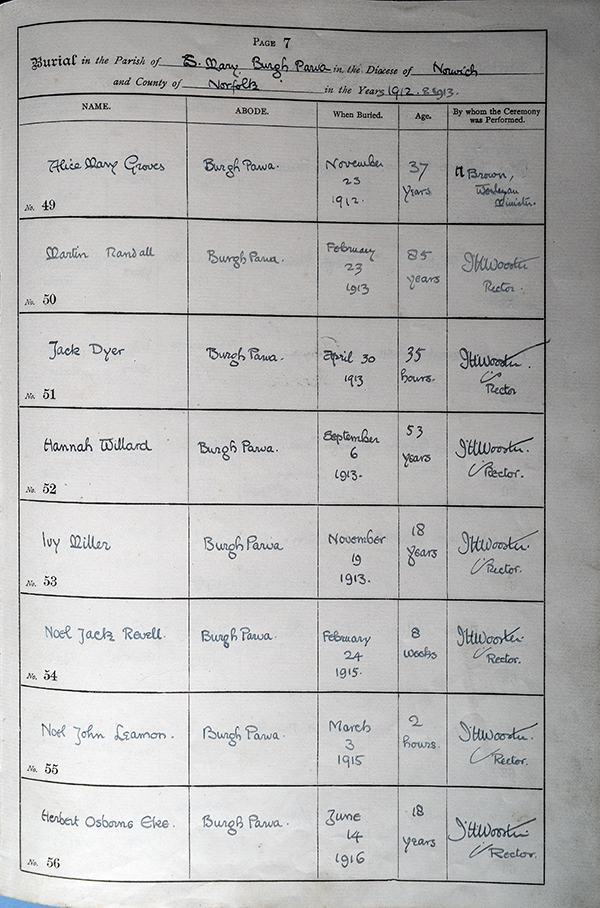 PAGE 7
Burial in the Parish of S. Mary Burgh Parva in the Diocese of Norwich
and County of Norfolk in the Years 1912. & 1913.
NAME. ABODE. When Buried. Age. By whom the Ceremony was Performed.
Alice Mary Groves Burgh Parva. November 23 1912. 37 years Brown, Wesleyan Minister.
No. 49
Martin Randall Burgh Parva. February 23 1913 85 years Wooster Rector.
No. 50
Jack Dyer Burgh Parva. April 30 1913 35 hours. Wooster. Rector
No. 51
Hannah Willard Burgh Parva. September 6 1913. 53 years Wooster. Rector.
No. 52
Ivy Miller Burgh Parva November 19 1913. 18 years Wooster. Rector.
No. 53
Noel Jack Revell. Burgh Parva. February 24 1915. 8 weeks Wooster. Rector.
No. 54
Noel John Leamon. Burgh Parva. March 3 1915 2 hours. Wooster. Rector.
No. 55
Herbert Osborne Eke. Burgh Parva. June 14 1916 18 years Wooster. Rector.
No. 56